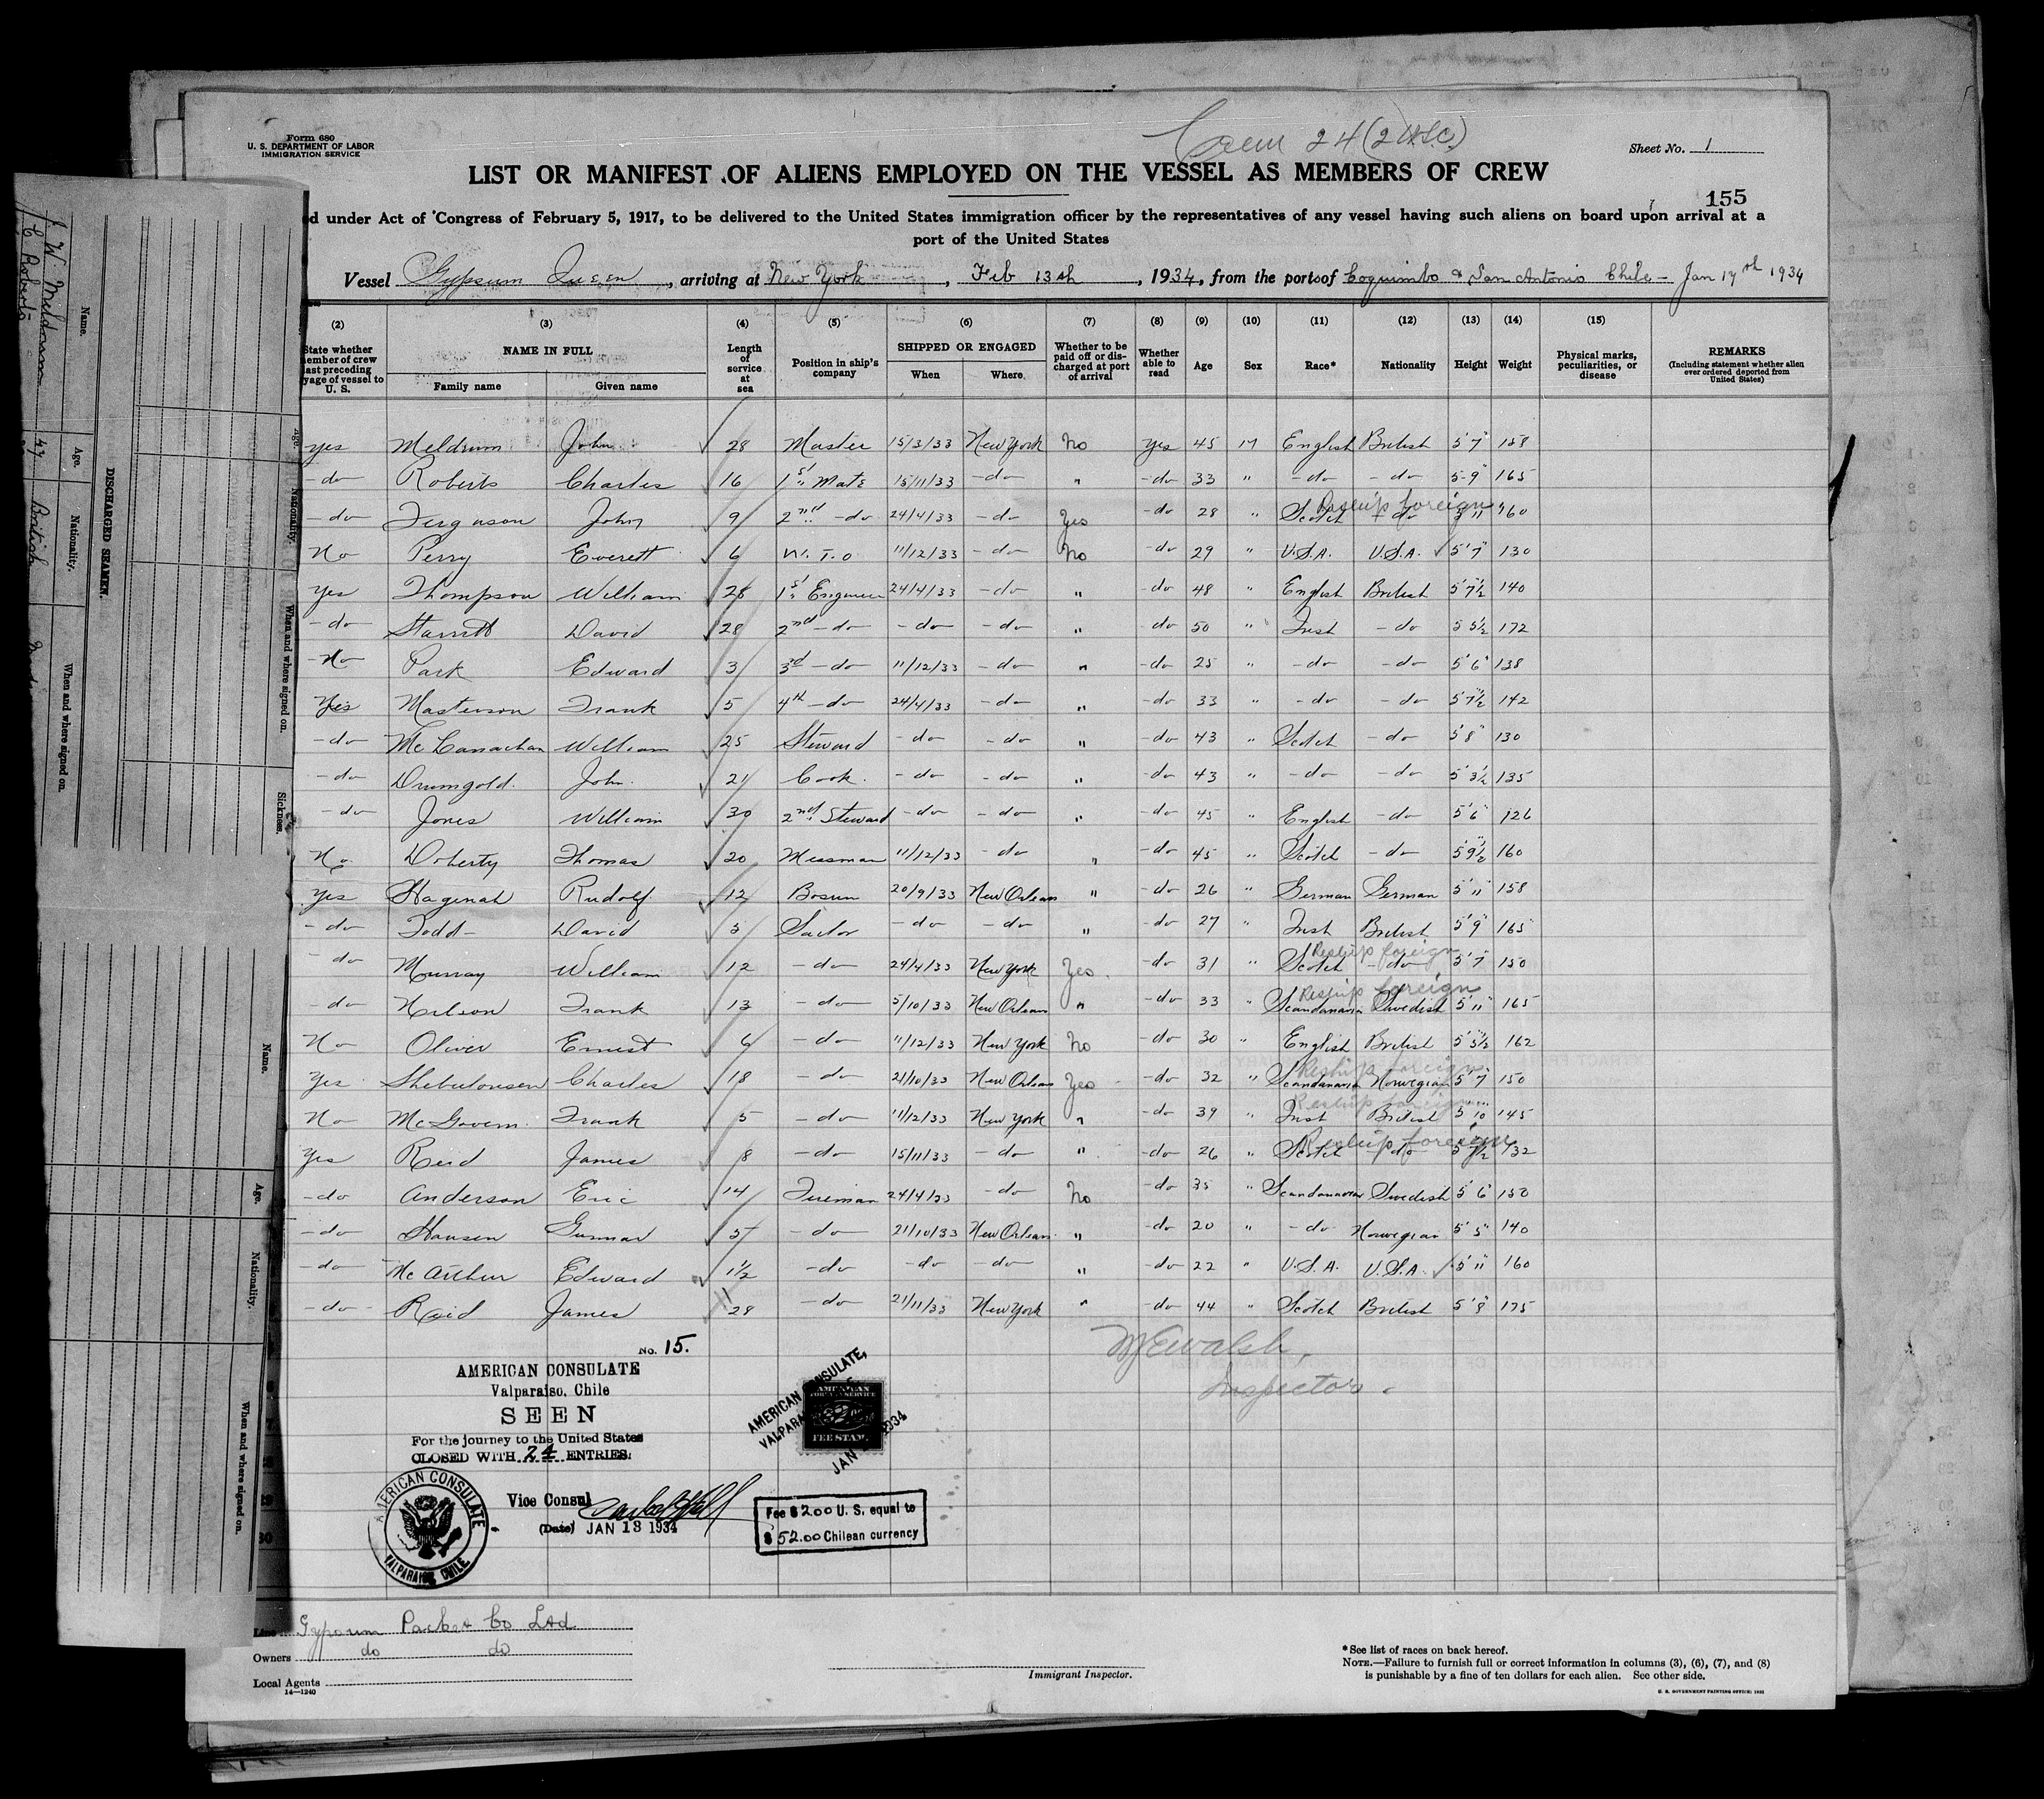 Form 680
U. S. DEPARTMENT OF LABOR
IMMIGRATION SERVICE
Crew 24 (2 U.S.C.)
Sheet No. 1
LIST OR MANIFEST OF ALIENS EMPLOYED ON THE VESSEL AS MEMBERS OF CREW
155
d under Act of Congress of February 5, 1917, to be delivered to the United States immigration officer by the representatives of any vessel having such aliens on board upon arrival at a
port of the United States
Vessel Gypsum Queen, arriving at New York, Feb 13th, 1934, from the ports of Coquimbo & San Antonio Chile - Jan 17th 1934
(2) (3) (4) (5) (6) (7) (8) (9) (10) (11) (12) (13) (14) (15)
State whether member of crew last preceding voyage of vessel to U. S. NAME IN FULL Family name Given name Length of service at sea Position in ship's company SHIPPED OR ENGAGED When Where Whether to be paid off or discharged at port of arrival Whether able to read Age Sex Race* Nationality Height Weight Physical marks, peculiarities, or disease REMARKS (Including statement whether alien ever ordered deported from United States)
yes Meldrum John 28 Master 15/3/33 New York No Yes 45 M English British 5'7" 158
-do- Roberts Charles 16 1st Mate 15/11/33 -do- " -do- 33 " -do- -do- 5-9" 165
Reship foreign
-do- Ferguson John 9 2nd -do- 24/4/33 -do- Yes -do- 28 " Scotch -do- 5'11" 160
No Perry Everett 6 W.T.O 11/12/33 -do- No -do- 29 " U.S.A. U.S.A. 5'7" 130
Yes Thompson William 28 1st Engineer 24/4/33 -do- " -do- 48 " English British 5'7½" 140
-do- Starritt David 28 2nd -do- -do- -do- " -do- 50 " Irish -do- 5 5½ 172
-No Park Edward 3 3rd -do- 11/12/33 -do- " -do- 25 " -do- -do- 5'6" 138
Yes Masterson Frank 5 4th -do- 24/4/33 -do- " -do- 33 " -do- -do- 5'7½" 142
-do- McLanachan William 25 Steward -do- -do- " -do- 43 " Scotch -do- 5'8" 130
-do- Drumgold John 21 Cook -do- -do- " -do- 43 " -do- -do- 5'3½ 135
-do- Jones William 30 2nd Steward -do- -do- " -do- 45 " English -do- 5'6" 126
No Doherty Thomas 20 Messman 11/12/33 -do- " -do- 45 " Scotch -do- 5'9½" 160
Yes Hagenah Rudolf 12 Bosun 20/9/33 New Orleans " -do- 26 " German German 5'11" 158
-do- Todd David 3 Sailor -do- -do- " -do- 27 " Irish British 5'9" 165
Reship foreign
-do- Murray William 12 -do- 24/4/33 New York Yes -do- 31 " Scotch -do- 5'7" 150
Reship foreign
-do- Nilson Frank 13 -do- 5/10/33 New Orleans " -do- 33 " Scandanavia Swedish 5'11" 165
No Oliver Ernest 6 -do- 11/12/33 New York No -do- 30 " English British 5'5½" 162
Reship foreign
Yes Charles 18 -do- 21/10/33 New Orleans Yes -do- 32 " Scandanavia Norwegian 5'7" 150
Reship foreign
No McGovern Frank 5 -do- 11/12/33 New York " -do- 39 " Irish British 5'10" 145
Reship foreign
Yes Reid James 8 -do- 15/11/33 -do- " -do- 26 " Scotch -do- 5 7½ 132
-do- Anderson Eric 14 Fireman 24/4/33 -do- No -do- 35 " Scandanavia Swedish 5'6" 150
-do- Hansen Gunnar 5 -do- 21/10/33 New Orleans " -do- 20 " -do- Norwegian 5'5" 140
-do- McArthur Edward 1½ -do- -do- -do- " -do- 22 " U.S.A. U.S.A. 5'11" 160
-do- Reid James 28 -do- 21/11/33 New York " -do- 44 " Scotch British 5'8" 175
McWalsh,
Inspector.
No. 15.
AMERICAN CONSULATE
Valparaiso, Chile
SEEN
For the journey to the United States
CLOSED WITH 24 ENTRIES.
Vice Consul
(Date) JAN 13 1934
AMERICAN CONSULATE
VALPARAISO, CHILE.
AMERICAN CONSULATE,
VALPARAISO
JAN 1934
AMERICAN
FOREIGN SERVICE
FEE STAMP
Fee $2.00 U. S. equal to
$52.00 Chilean currency
Line Gypsum Packet Co Ltd.
Owners do do
Local Agents
14-1240
Immigrant Inspector.
*See list of races on back hereof.
NOTE.—Failure to furnish full or correct information in columns (3), (6), (7), and (8)
is punishable by a fine of ten dollars for each alien. See other side.
U. S. GOVERNMENT PRINTING OFFICE: 1932
DISCHARGED SEAMEN.
Name. Age. Nationality. When and where signed on.
J. W. Meldrum 47 British
C Roberts
Age. Nationality. When and where signed on. Sickness.
Name. Age. Nationality. When and where signed on.